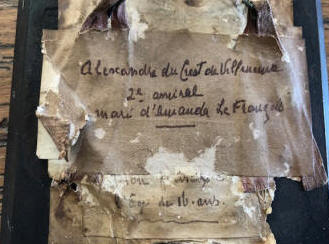 Alexandre du Crest de Villeneuve
2e amiral
mari d'Amanda Le François
l'âge de 16 ans.